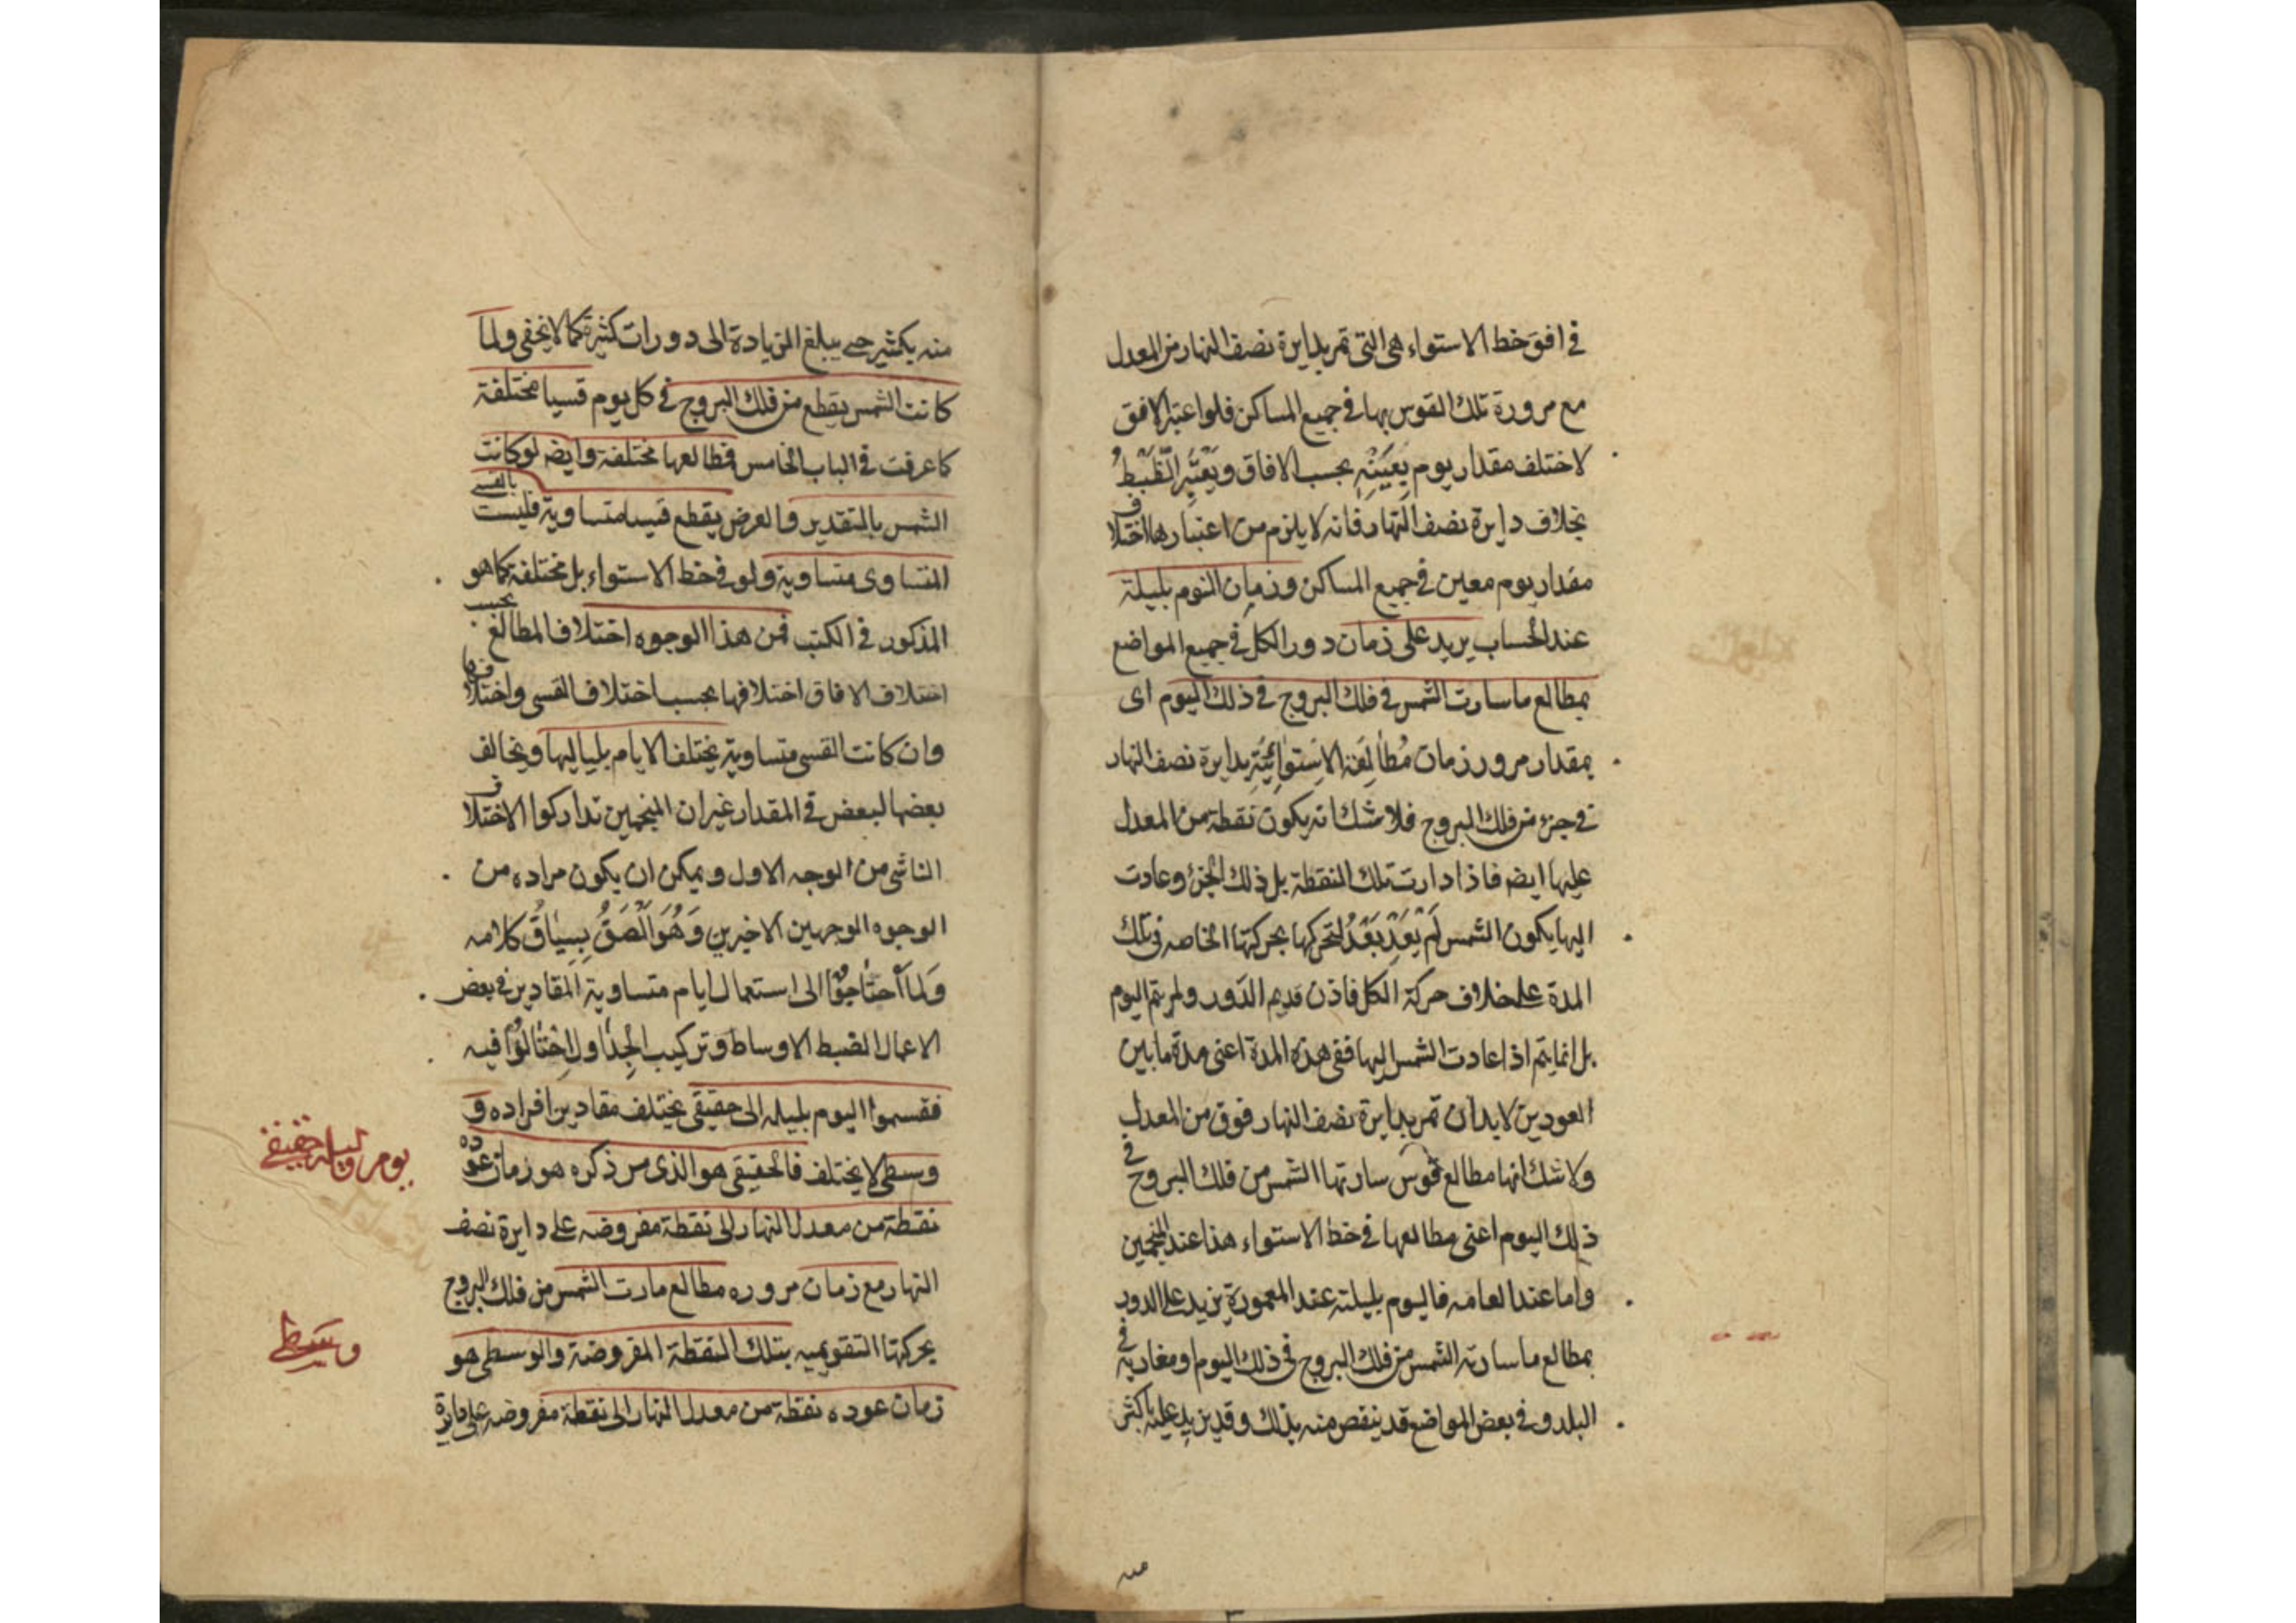 في افق خط الاستواء هي التي تمر بدايرة نصف النهار من المعدل
مع مرورة تلك القوس بها في جميع المساكن فلو اعتبر الافق
لاختلف مقدار يوم بعينه بحسب الافاق
بخلاف دايرة نصف النهار فانه لا يلزم من اعتبارها اختلاف
مقدار يوم معين في جميع المساكن وزمان اليوم بليلة
عند الحساب يزيد على زمان دور الكل في جميع المواضع
بمطالع ما سارت الشمس في فلك البروج في ذلك اليوم اى
بمقدار مرور زمان مطالعه الاستوائية بدايرة نصف النهار
في جزء من فلك البروج فلا شك انه يكون نقطة من المعدل
عليها ايضه فاذا دارت تلك النقطة بل ذلك الجزؤ وعادت
اليها يكون الشمس لم يعد بعد لتحركها بحركتها الخاصه في تلك
المدة على خلاف حركة الكل فاذن قديم الدور ولم يتم اليوم
بل انما يتم اذا عادت الشمس اليها ففي هذه المدة اعنى مدة ما بين
العودين لابد ان تمر بدايرة نصف النهار فوق من المعدل
ولا شك انها مطالع قوس سارتها الشمس من فلك البروج في
ذلك اليوم اعنى مطالعها في خط الاستواء هذا عند المنجمين
واما عند العامه فاليوم بليلته عند المعمورة يزيد على الدور
بمطالع ما سارته الشمس من فلك البروج في ذلك اليوم او مغاربه في
البلد و في بعض المواضع قد ينقص منه بذلك وقد يزيد عليه باكثر
منه
منه بكثير حتى يبلغ الزيادة الى دورات كثيرة كما لا يخفى ولما
كانت الشمس يقطع من فلك البروج في كل يوم قسيا مختلفة
كما عرفت في الباب الخامس فطالعها مختلفة وايضه لو كانت
الشمس بالتقدير والعرض يقطع قسيا متساوية فليست بالقسى
المتساوى متساوية ولو في خط الاستواء بل مختلفة كما هو
المذكور في الكتب فمن هذا الوجوه اختلاف المطالع بحسب
اختلاف الافاق اختلافها بحسب اختلاف القسى واختلافها
وان كانت القسى متساوية يختلف الايام بلياليها ويخالف
بعضها لبعض في المقدار غير ان المنجمين تداركوا الاختلاف
الناشى من الوجه الاول ويمكن ان يكون مراده من
الوجوه الوجهين الاخيرين وهو الصق بسياق كلامه
ولما احتاجوا الى استعمال ايام متساوية المقادير في بعض
الاعمال لضبط الاوساط وتركيب الجداول احتالوا فيه
فقسموا اليوم بليله الى حقيقي يختلف مقادير افراده و
وسطى لا يختلف فالحقيقى هو الذى مر ذكره هو زمان عوده
نقطة من معدل النهار الى نقطة مفروضه على دايرة نصف
النهار مع زمان مروره مطالع مارت الشمس من فلك البروج
بحركتها التقويميه بتلك النقطة المفروضة والوسطى هو
زمان عوده نقطة من معدل النهار الى نقطة مفروضه على دايرة
يوم وليله حقيقي
وسطى